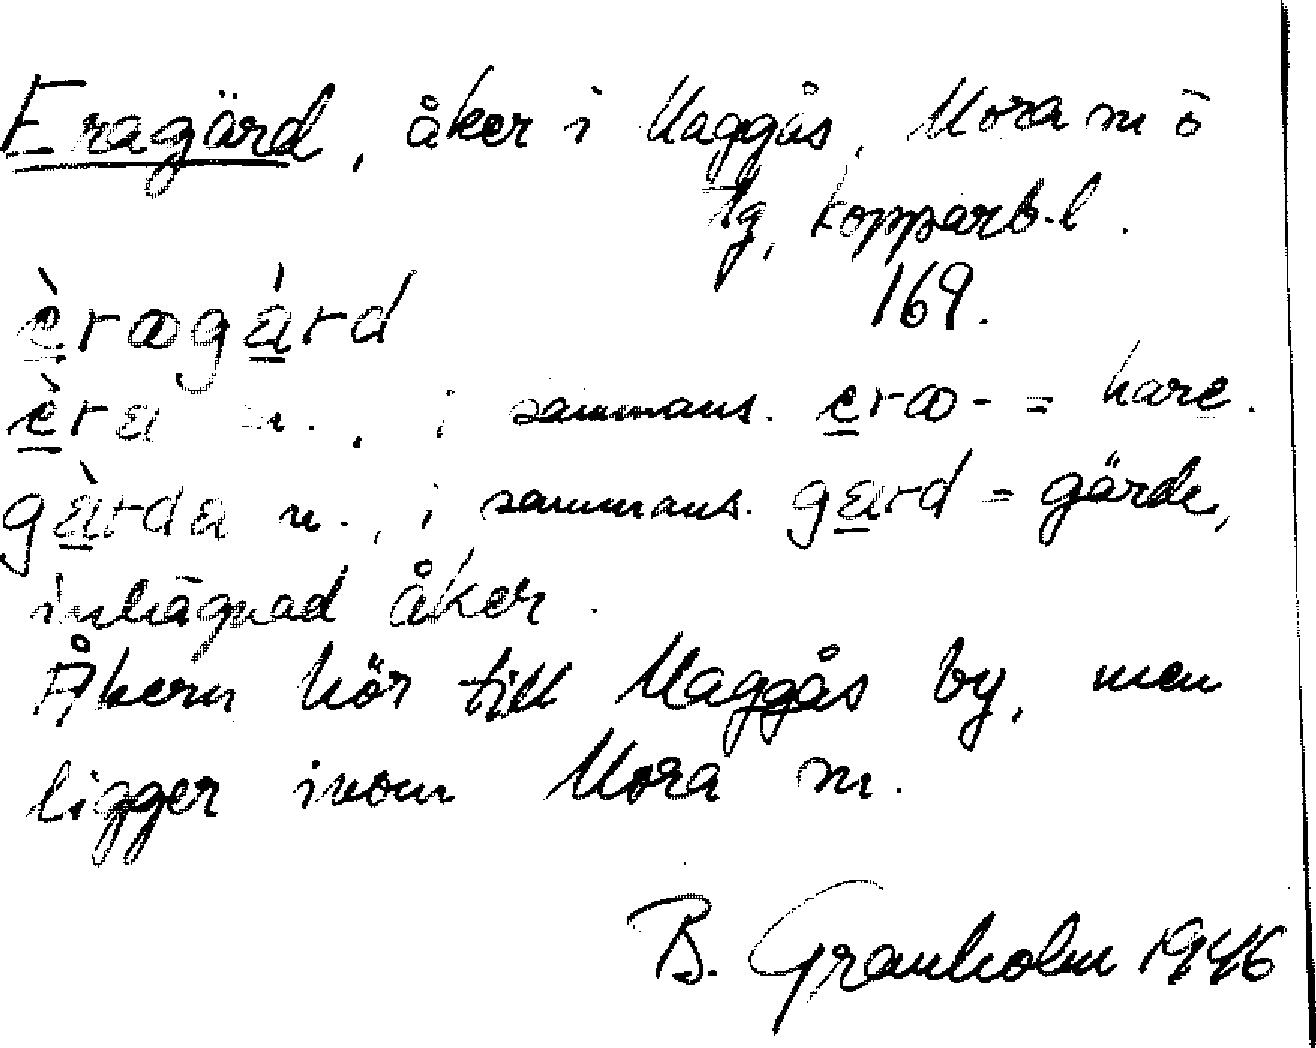 Eragärd, åker i Maggås, Mora m ö
tg, Kopparb.l.
169.
è̱rægá̱rd
è̱ra m., i sammans. e̱ræ- = hare.
gà̱rda n., i sammans. ga̱rd = gärde,
inhägnad åker.
Åkern hör till Maggås by, men
ligger inom Mora m.
B. Granholm 1946